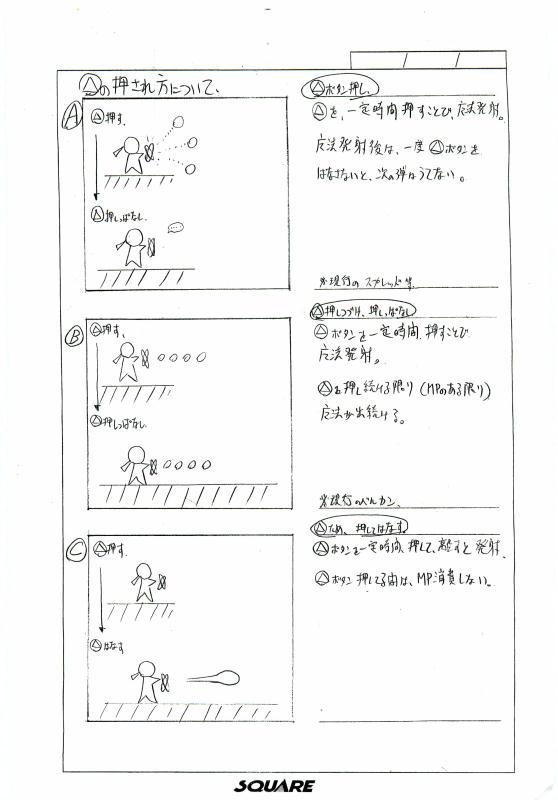 △の押され方について、
A
△押す、
△押しっぱなし、
△ボタン押し、
△を、一定時間押すことで、反法発射。
反法発射後は、一度△ボタンを
はなさないと、次の弾はうてない。
※現行のスプレッド等
B
△押す、
△押しっぱなし、
△押しつづけ、押しっぱなし
△ボタンを一定時間押すことで
反法発射。
△を押し続ける限り(MPのある限り)
反法が出続ける。
※現行のバルカン、
C
△押す、
△はなす
△ため、押してはなす。
△ボタンを一定時間、押して、離すと発射、
△ボタン押してる間は、MP消費しない。
SQUARE